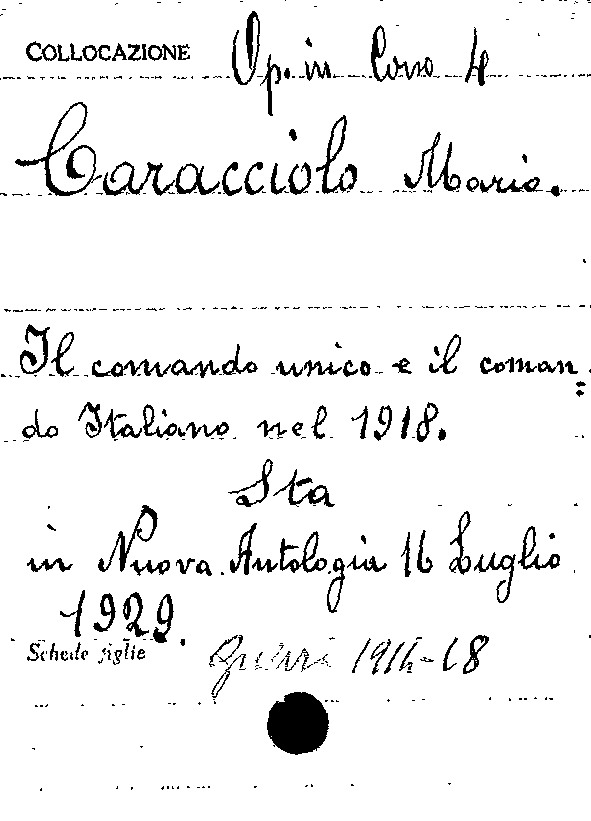 COLLOCAZIONE Op. in Cons 4
Caracciolo Mario.
Il comando unico e il coman=
do Italiano nel 1918.
Sta
in Nuova Antologia 16 Luglio
1929.
Schede figlie 1914-18